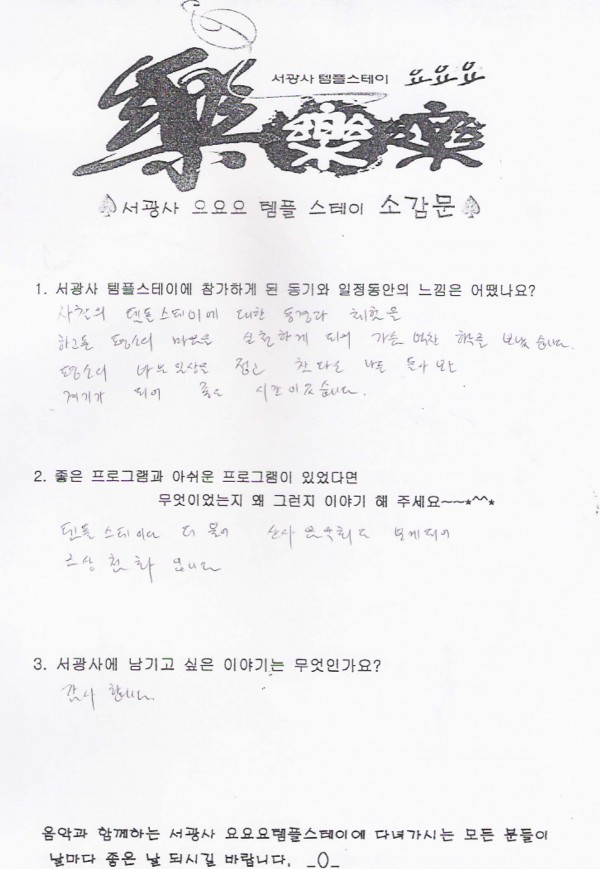 서광사 템플스테이 요요요
樂樂樂
서광사 요요요 템플 스테이 소감문
1. 서광사 템플스테이에 참가하게 된 동기와 일정동안의 느낌은 어땠나요?
사찰의 템플스테이에 대한 동경과 체험을
하고픈 평소의 마음을 실천하게 되어 가슴 벅찬 하루를 보냈습니다.
평소의 일상을 접고 참다운 나를 돌아보는
계기가 되어 좋은 시간이었습니다.
2. 좋은 프로그램과 아쉬운 프로그램이 있었다면
무엇이었는지 왜 그런지 이야기 해 주세요~~*^^*
템플스테이와 더불어 산사음악회도 보게되어
금상첨화 입니다
3. 서광사에 남기고 싶은 이야기는 무엇인가요?
감사합니다.
음악과 함께하는 서광사 요요요템플스테이에 다녀가시는 모든 분들이
날마다 좋은 날 되시길 바랍니다. _()_